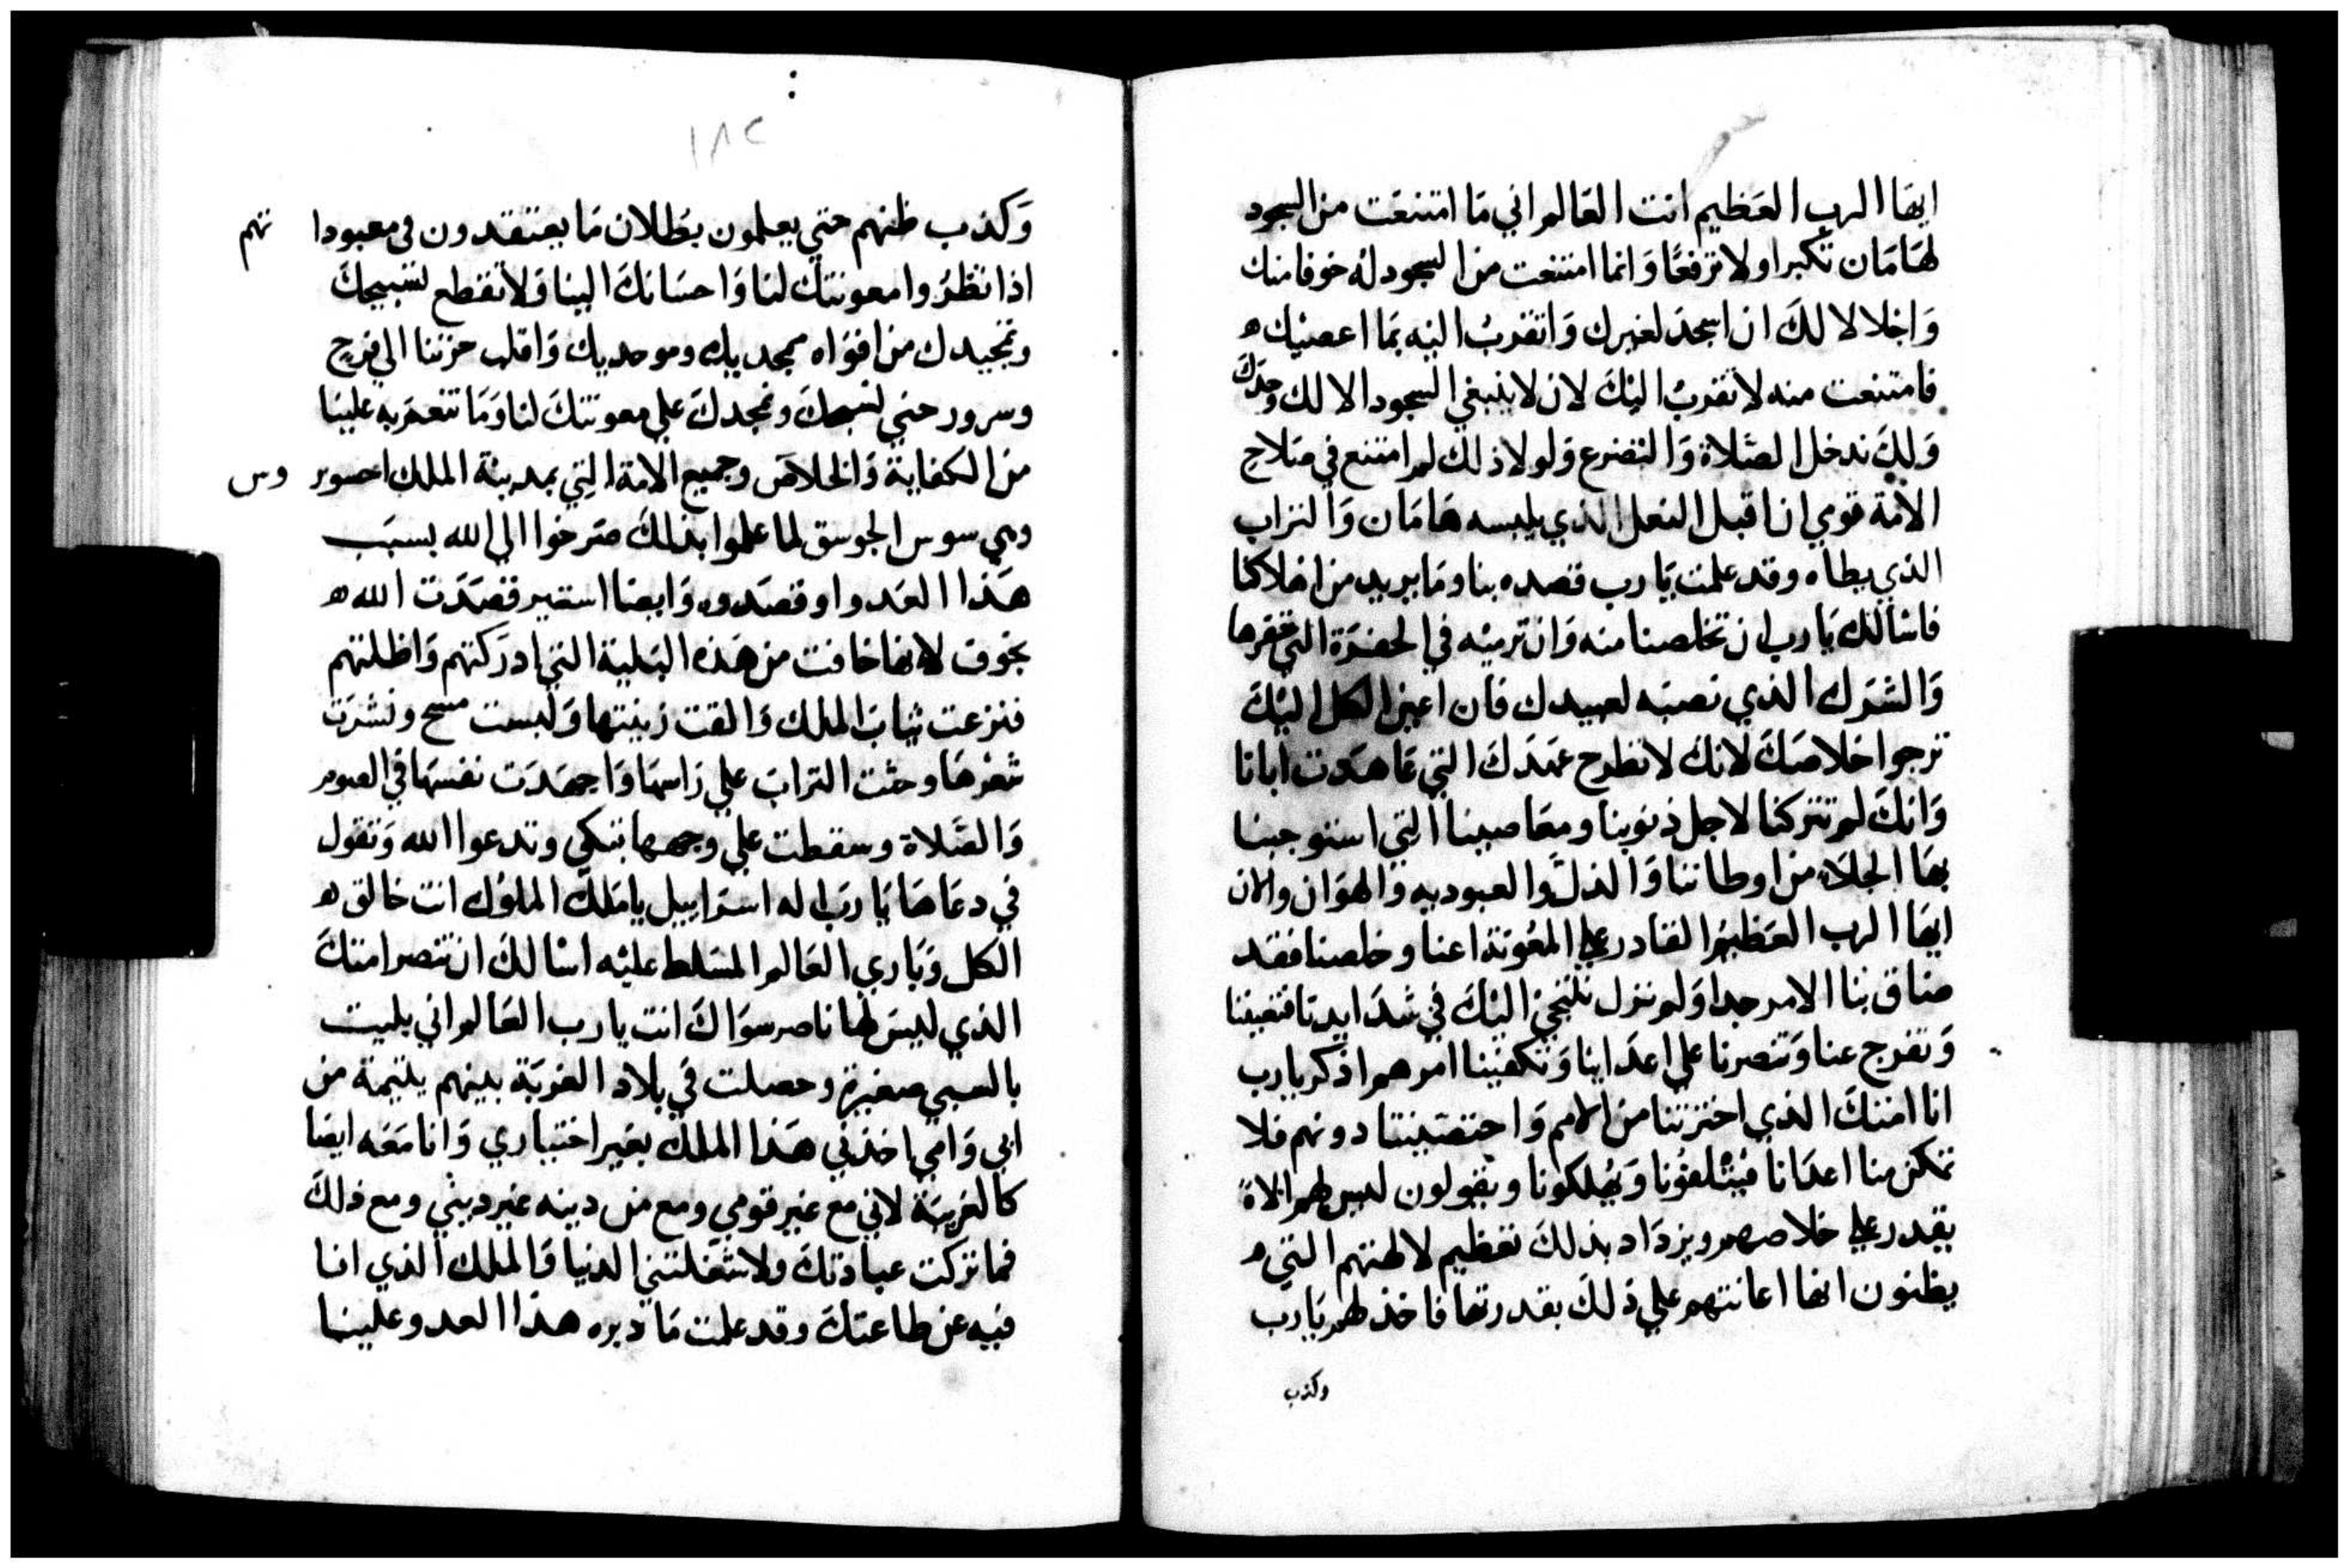 ايها الرب العظيم انت العالم اني ما امتنعت من السجود
لهامان تكبرا ولا ترفعا وانما امتنعت من السجود له خوفا منك
واجلالا لك ان اسجد لغيرك واتقرب اليه بما اعصيك ه
فامتنعت منه لاتقرب اليك لان لا ينبغي السجود الا لك وحدك
ولك ندخل الصلاة والتضرع ولولا ذلك لم امتنع في صلاح
الامة قومي ان اقبل النعل الذي يلبسه هامان والتراب
الذي يطاه وقد علمت يا رب قصده بنا وما يريد من اهلاكنا
فاسالك يا رب ان تخلصنا منه وان ترميه في الحفرة التي حفرها
والشرك الذي نصبه لعبيدك فان اعين الكل اليك
ترجوا خلاصك لانك لا تطرح عهدك التي عاهدت ابانا
وانك لم تتركنا لاجل ذنوبنا ومعاصينا التي استوجبنا
بها الجلاء من اوطاننا والذل والعبوديه والهوان والان
ايها الرب العظيم القادر علي المعونة اعنا وخلصنا فقد
ضاق بنا الامر جدا ولم نزل نلتجئ اليك في شدايدنا فتغيثنا
وتفرج عنا وتنصرنا علي اعداينا وتكفينا امرهم اذكر يا رب
انا امتك الذي اخترتنا من الامم واختصيتنا دونهم فلا
تمكن منا اعدانا فيتلفونا ويهلكونا ويقولون ليس لهم الاه
يقدر علي خلاصهم ويزداد بذلك تعظيم لالهتهم التي ه
يظنون انها اعانتهم علي ذلك بقدرتها فاخذلهم يا رب
وكذب
١٨٢
وكذب ظنهم حتي يعلمون بطلان ما يعتقدون في معبوداتهم
اذا نظروا معونتك لنا واحسانك الينا ولا تقطع تسبيحك
وتمجيدك من افواه ممجديك وموحديك واقلب حزننا الي فرح
وسرور حتي نسبحك ونمجدك علي معونتك لنا وما تنعم به علينا
من الكفاية والخلاص وجميع الامة التي بمدينة الملك احصوبروس
وهي سوس الجوسق لما علموا بذلك صرخوا الي الله بسبب
هذا العدو او قصدوه وايضا استير قصدت الله ه
بخوف لانها خافت من هذه البلية التي ادركتهم واظلتهم
فنزعت ثياب الملك والقت زينتها ولبست مسح ونشرت
شعرها وحثت التراب علي راسها واجهدت نفسها في الصوم
والصلاة وسقطت علي وجهها تبكي وتدعوا الله وتقول
في دعاها يا رب اله اسراييل يا ملك الملوك انت خالق ه
الكل وباري العالم المسلط عليه اسالك ان تنصر امتك
الذي ليس لها ناصر سواك انت يا رب العالم اني بليت
بالسبي صغيرة وحصلت في بلاد الغربة بينهم يتيمة من
ابي وامي اخذني هذا الملك بغير اختياري وانا معه ايضا
كالغريبة لاني مع غير قومي ومع من دينه غير ديني ومع ذلك
فما تركت عبادتك ولا شغلتني الدنيا والملك الذي انا
فيه عن طاعتك وقد علمت ما دبره هذا العدو علينا